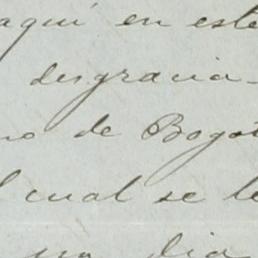 aquí en este
desgracia-
no de Bogot
l cual se le
no dia